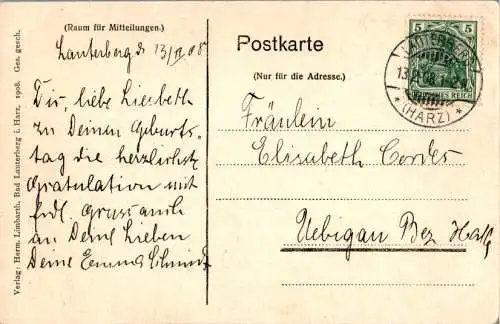 (Raum für Mitteilungen.)
Lauterberg d 13/12 08
Dir, liebe Liesbeth
zu Deinem Geburts-
tag die herzlichste
Gratulation mit
frdl. Gruss auch
an Deine Lieben
Deine Emma Schmidt
Verlag: Herm. Limbarth, Bad Lauterberg i. Harz. 1908. Ges. gesch.
Postkarte
(Nur für die Adresse.)
Fräulein
Elisabeth Cordes
Uebigau Bez. Halle
5 5
DEUTSCHES REICH
LAUTERBERG
13.12.08
* (HARZ) *